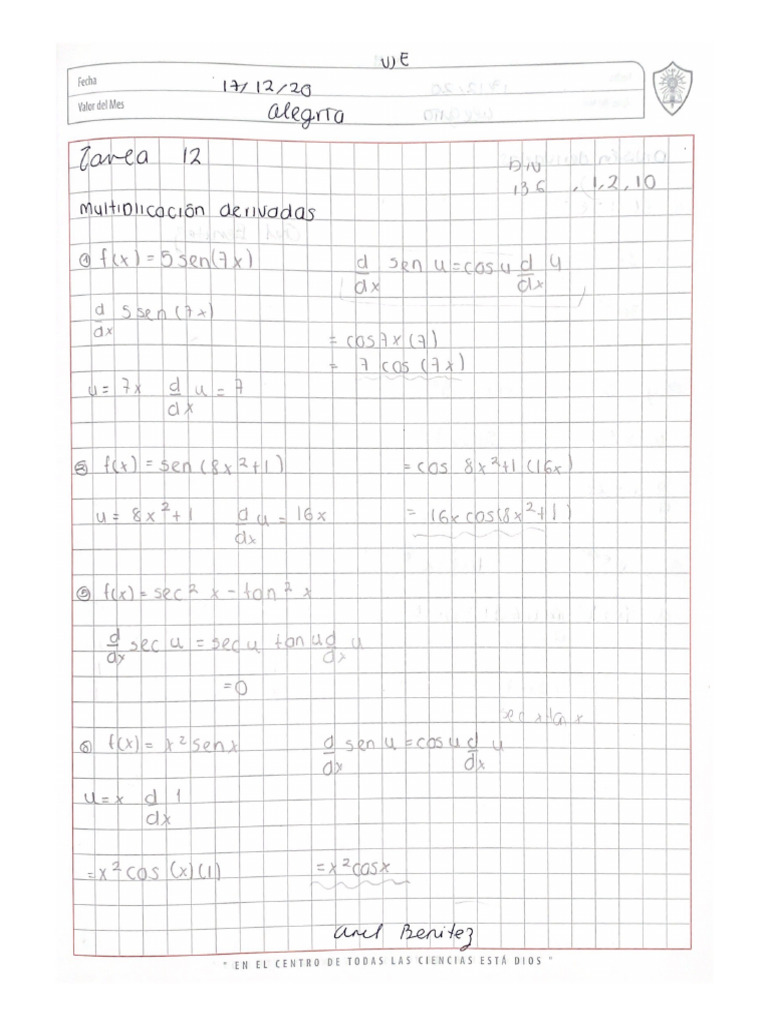 U)E
Fecha 17/12/20
Valor del Mes Alegria
Tarea 12
DN
136 , 1,2,10
Multiplicación derivadas
① f(x) = 5 sen(7x) d/dx sen u = cos u d/dx u
d/dx 5 sen (7x)
= cos 7x (7)
= 7 cos (7x)
u = 7x d/dx u = 7
② f(x) = sen (8x²+1) = cos 8x²+1 (16x)
u = 8x²+1 d/dx u = 16x = 16x cos(8x²+1)
f(x) = sec² x - tan² x
d/dx sec u = sec u tan u d/dx u
= 0
sec x tan x
⑥ f(x) = x² sen x d/dx sen u = cos u d/dx u
u = x d/dx 1
= x² cos (x)(1) = x² cos x
Ariel Benitez
" EN EL CENTRO DE TODAS LAS CIENCIAS ESTÁ DIOS "